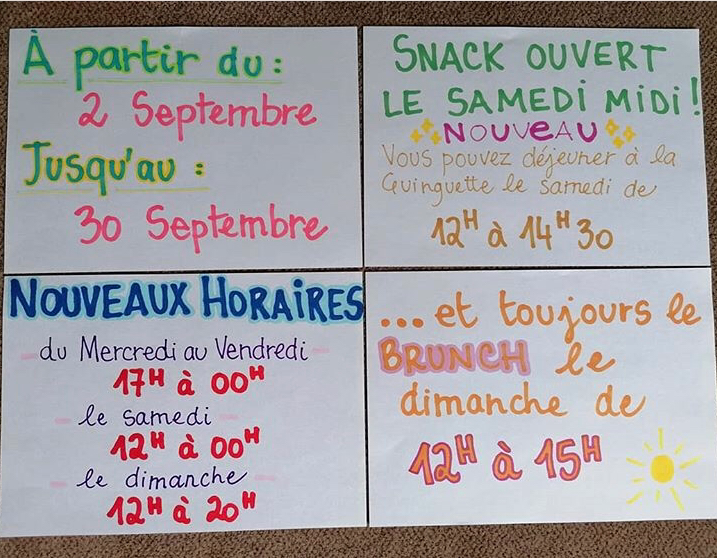 À partir du :
2 Septembre
Jusqu'au :
30 Septembre
SNACK OUVERT
LE SAMEDI MIDI !
NOUVEAU
Vous pouvez déjeuner à la
Guinguette le samedi de
12H à 14H30
NOUVEAUX HORAIRES
du Mercredi au Vendredi
17H à 00H
le samedi
12H à 00H
le dimanche
12H à 20H
... et toujours le
BRUNCH le
dimanche de
12H à 15H